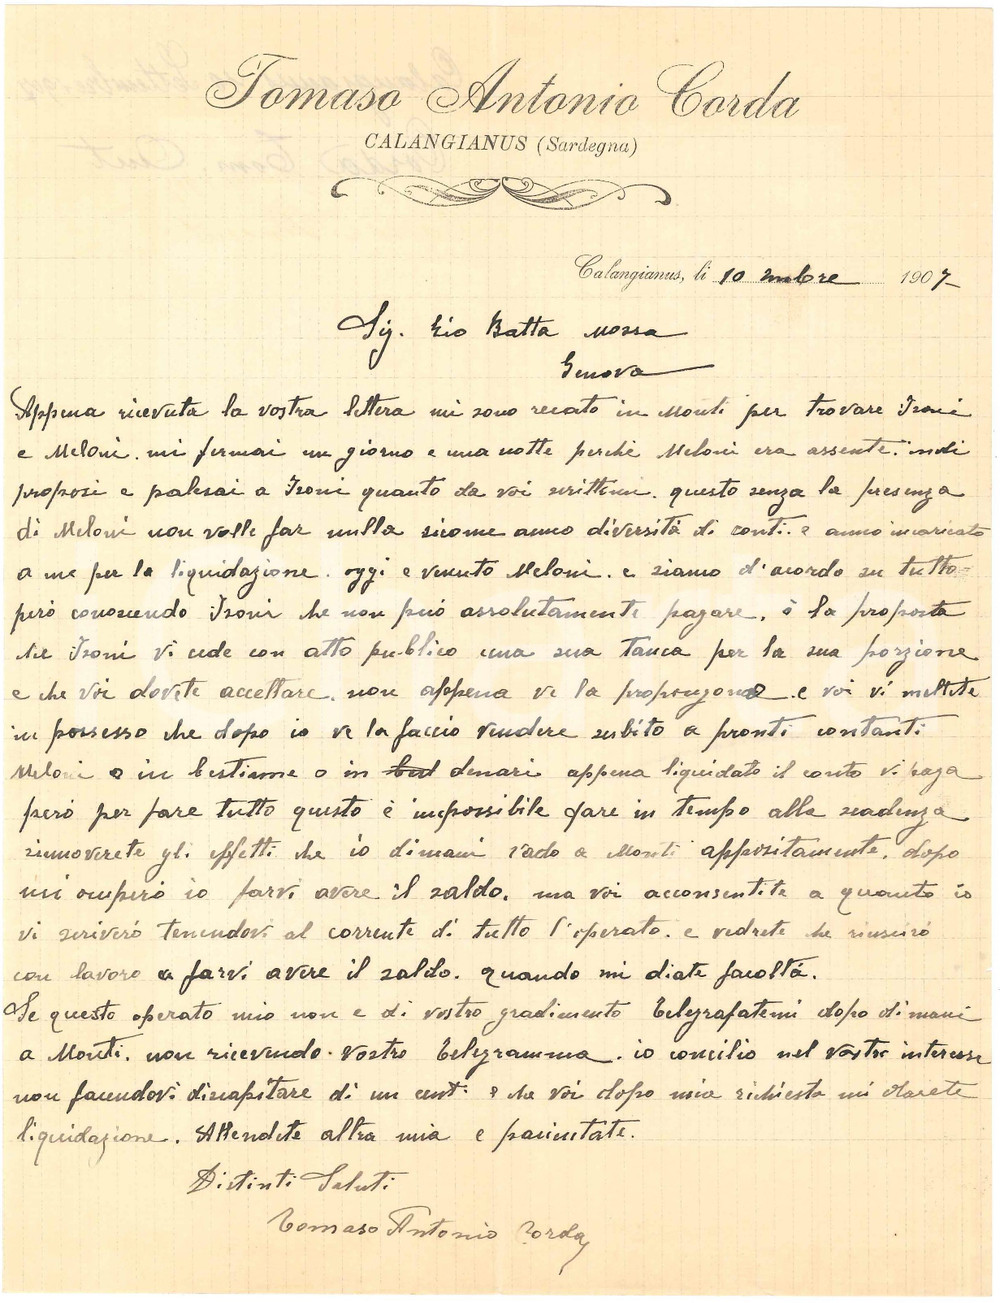 Tomaso Antonio Corda
CALANGIANUS (Sardegna)
Calangianus, li 10 1907
Sig. Gio Batta Mossa
Genova
Appena ricevuta la vostra lettera mi sono recato in Monti per trovare Isoni
e Meloni. mi fermai un giorno e una notte perchè Meloni era assente. indi
proposi e palesai a Isoni quanto da voi scrittimi. questo senza la presenza
di Meloni non volle far nulla sicome anno diversità di conti. e anno incaricato
a me per la liquidazione. oggi e venuto Meloni. e siamo d'acordo su tutto
però conoscendo Isoni che non può assolutamente pagare. è la proposta
che Isoni vi cede con atto publico una sua tanca per la sua porzione
e che voi dovete accettare. non appena ve la propongono e voi vi mettete
in possesso che dopo io ve la faccio vendere subito a pronti contanti
Meloni o in bestiame o in denari appena liquidato il conto vi paga
però per fare tutto questo è impossibile fare in tempo alla scadenza
rinnoverete gli effetti che io dimani vado a Monti appositamente. dopo
mi ocuperò io farvi avere il saldo. ma voi acconsentite a quanto io
vi scriverò tenendovi al corrente di tutto l'operato. e vedrete che riuscirò
con lavoro a farvi avere il saldo. quando mi diate facoltà.
Se questo operato mio non e di vostro gradimento telegrafatemi dopo dimani
a Monti. non ricevendo vostro telegramma. io concilio nel vostro interesse
non facendovi discapitare di un cent. e che voi dopo mia richiesta mi darete
liquidazione. Attendete altra mia e pazientate.
Distinti Saluti
Tomaso Antonio Corda